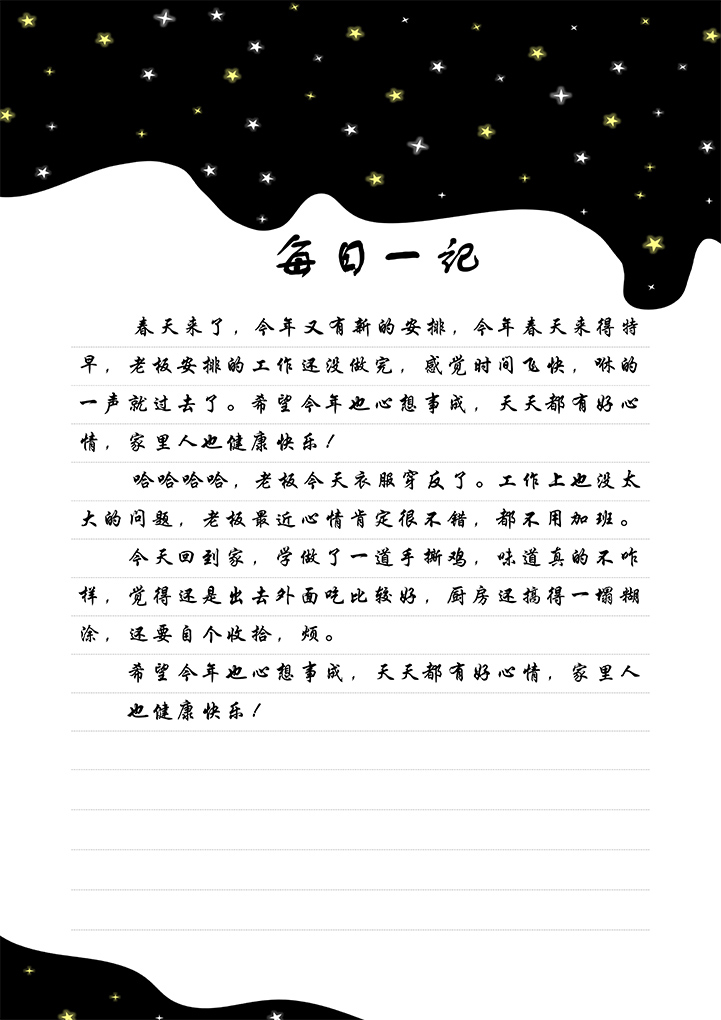 每日一记
春天来了，今年又有新的安排，今年春天来得特
早，老板安排的工作还没做完，感觉时间飞快，咻的
一声就过去了。希望今年也心想事成，天天都有好心
情，家里人也健康快乐！
哈哈哈哈，老板今天衣服穿反了。工作上也没太
大的问题，老板最近心情肯定很不错，都不用加班。
今天回到家，学做了一道手撕鸡，味道真的不咋
样，觉得还是出去外面吃比较好，厨房还搞得一塌糊
涂，还要自个收拾，烦。
希望今年也心想事成，天天都有好心情，家里人
也健康快乐！